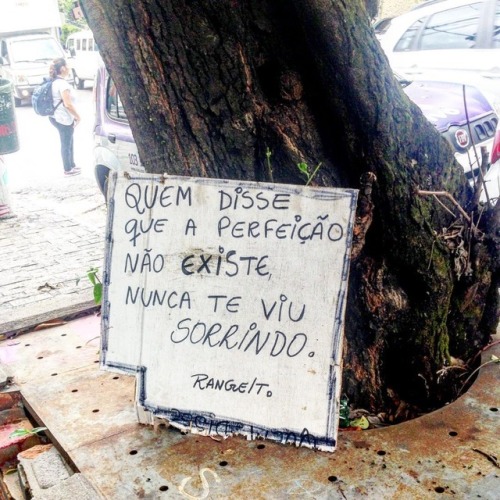 QUEM DISSE
QUE A PERFEIÇÃO
NÃO EXISTE,
NUNCA TE VIU
SORRINDO.
RANGEL T.
FIAT
103